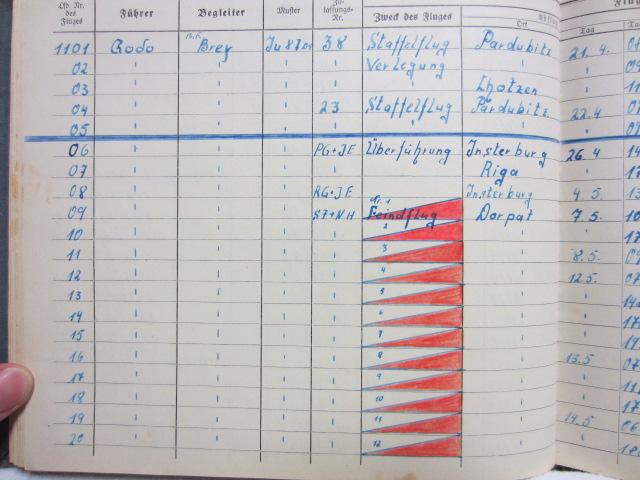 Lfd. Nr. des Fluges Führer Begleiter Muster Zulassungs-Nr. Zweck des Fluges Ort Tag
1101 Godo Brey Ju 87 38 Staffelflug Pardubitz 21.4.
02 " " " " Verlegung "
03 " " " " " Chotzen "
04 " " " 23 Staffelflug Pardubitz 22.4
05 " " " " " " "
06 " " " PG+JE Überführung Insterburg 26.4
07 " " " " " Riga "
08 " " " RG+JE Insterburg 4.5.
09 " " " S7+NH Nr. 1 Feindflug Dorpat 7.5.
10 " " " " 2 " "
11 " " " " 3 " 8.5.
12 " " " " 4 " 12.5.
13 " " " " 5 " "
14 " " " " 6 " "
15 " " " " 7 " "
16 " " " " 8 " 13.5
17 " " " " 9 " "
18 " " " " 10 " "
19 " " " " 11 " 14.5
20 " " " " 12 " "